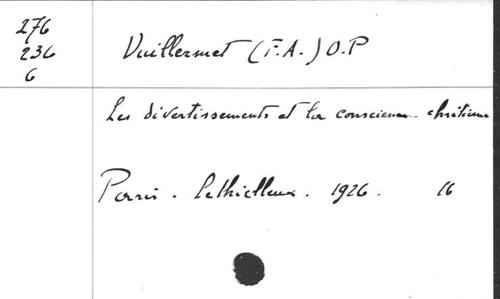 276
236
6
Vuillermet (F.A.) O.P
Les divertissements et la conscience chrétienne
Paris. Lethielleux. 1926. 16